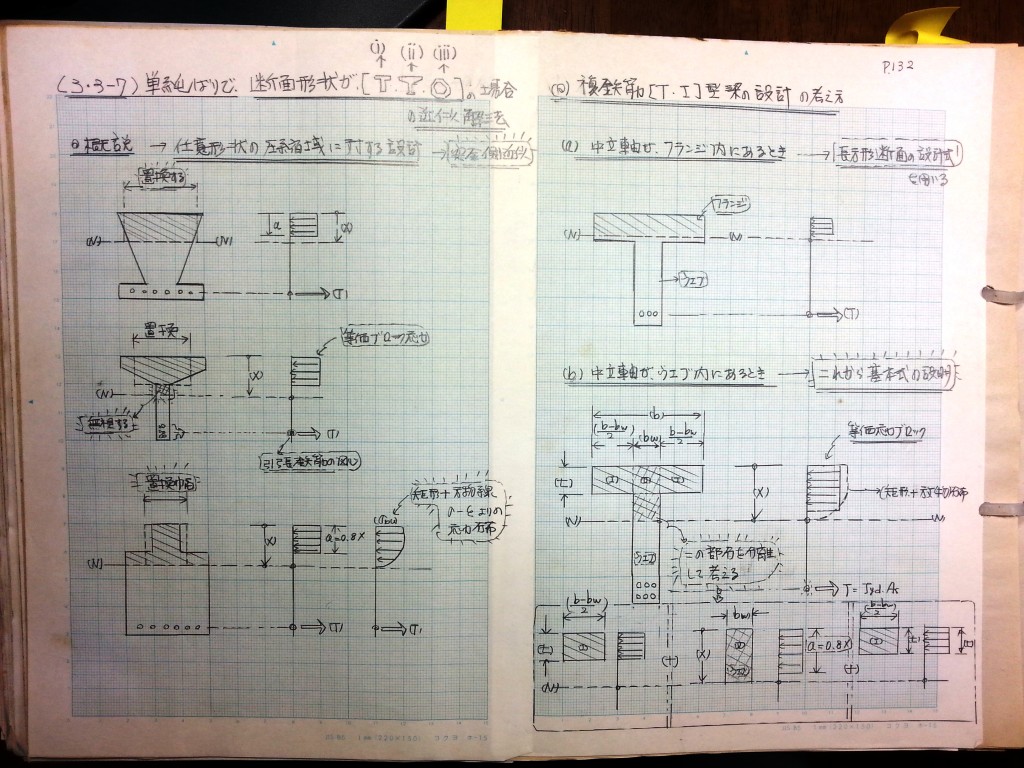 (i) (ii) (iii)
(3・3-7) 単純ばりで、断面形状が、[T・T・O]の場合
の近似解法
概説 → 任意形状の圧縮領域に対する設計 → 安全側近似
置換する
a (X)
(N) (N)
(T)
置換
等価ブロック応力
(X)
(N)
無視する
(T)
引張鉄筋の図心
置換巾
矩形+放物線
σ-εよりの
応力分布
(X) a=0.8X
(N)
(T) (T)
P.132
複鉄筋[T・I]型梁の設計の考え方
(a) 中立軸が、フランジ内にあるとき → 長方形断面の設計式
を用いる
フランジ
(N) (N)
ウエブ
(T)
(b) 中立軸が、ウエブ内にあるとき → これから基本式の説明
(b)
(b-bw)/2 (bw) (b-bw)/2
等価応力ブロック
(t) (X)
矩形+放物線分布
(N) (N)
ウエブ
この部分を分離
して考える
(b-bw)/2 bw (b-bw)/2
(t) (+) (X) a=0.8X (+) (t)
(N)